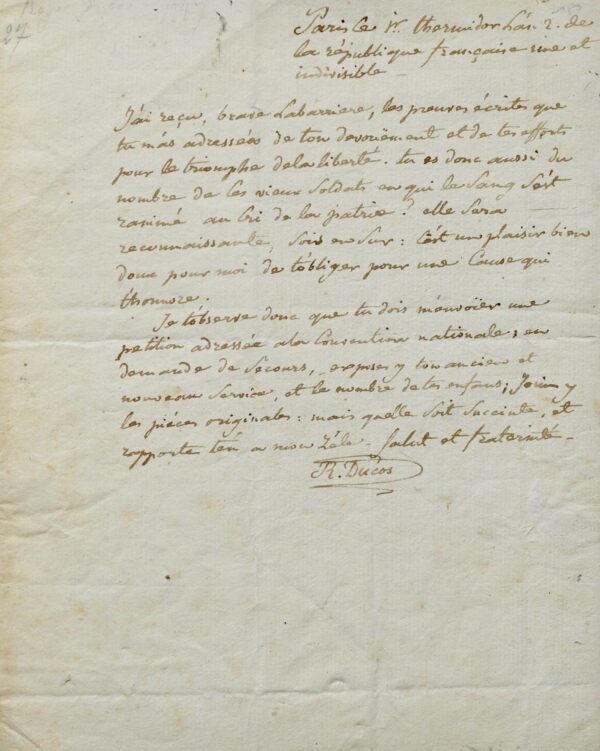 27
Paris le 1r. thermidor l'an 2. de
la république française une et
indivisible
J'ai reçu, brave Labarriere, les preuves écrites que
tu m'as adressées de ton devoüement et de tes efforts
pour le triomphe de la liberté. tu es donc aussi du
nombre de ces vieux soldats en qui le sang s'est
ranimé au cri de la patrie? elle sera
reconnaissante, sois en sur: c'est un plaisir bien
doux pour moi de t'obliger pour une cause qui
t'honnore.
Je t'observe donc que tu dois m'envoïer une
petition adressée a la Convention nationale, en
demande de secours, exposes y ton ancien et
nouveau service, et le nombre de tes enfans; Joins y
les piéces originales: mais qu'elle soit succinte, et
rapporte t'en a mon zéle. Salut et fraternité.
R. Ducos